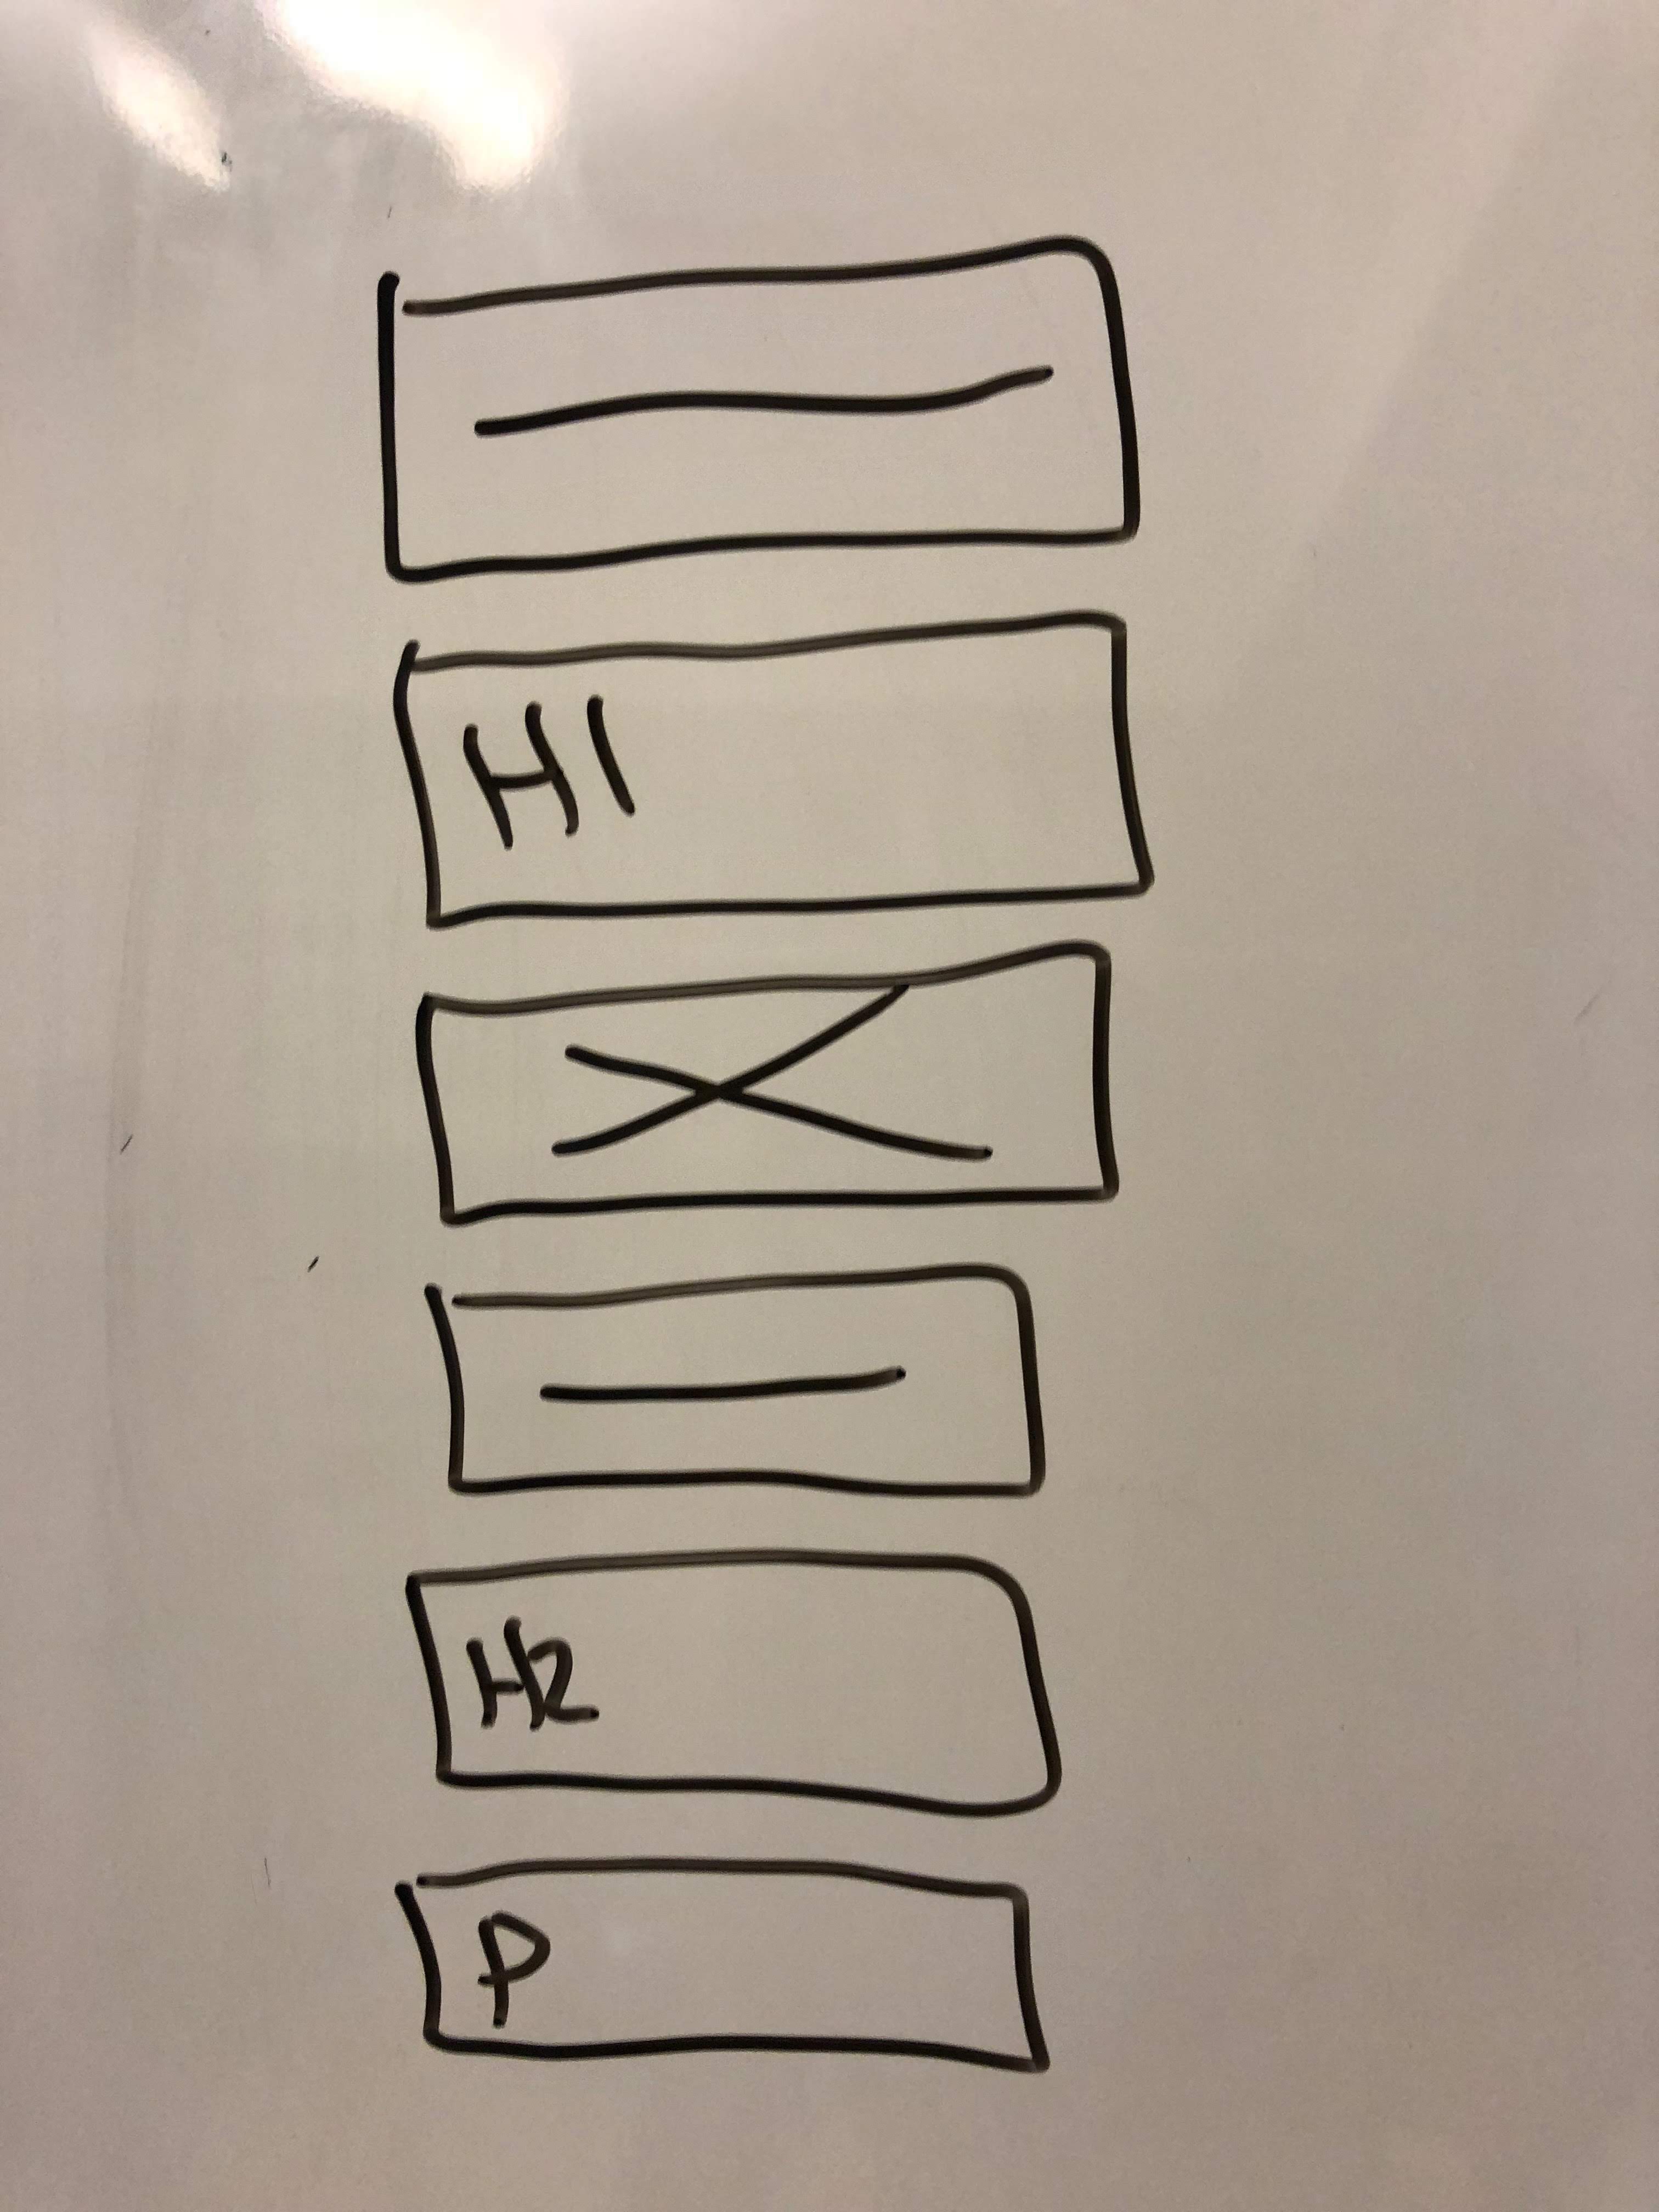 H1
H2
P